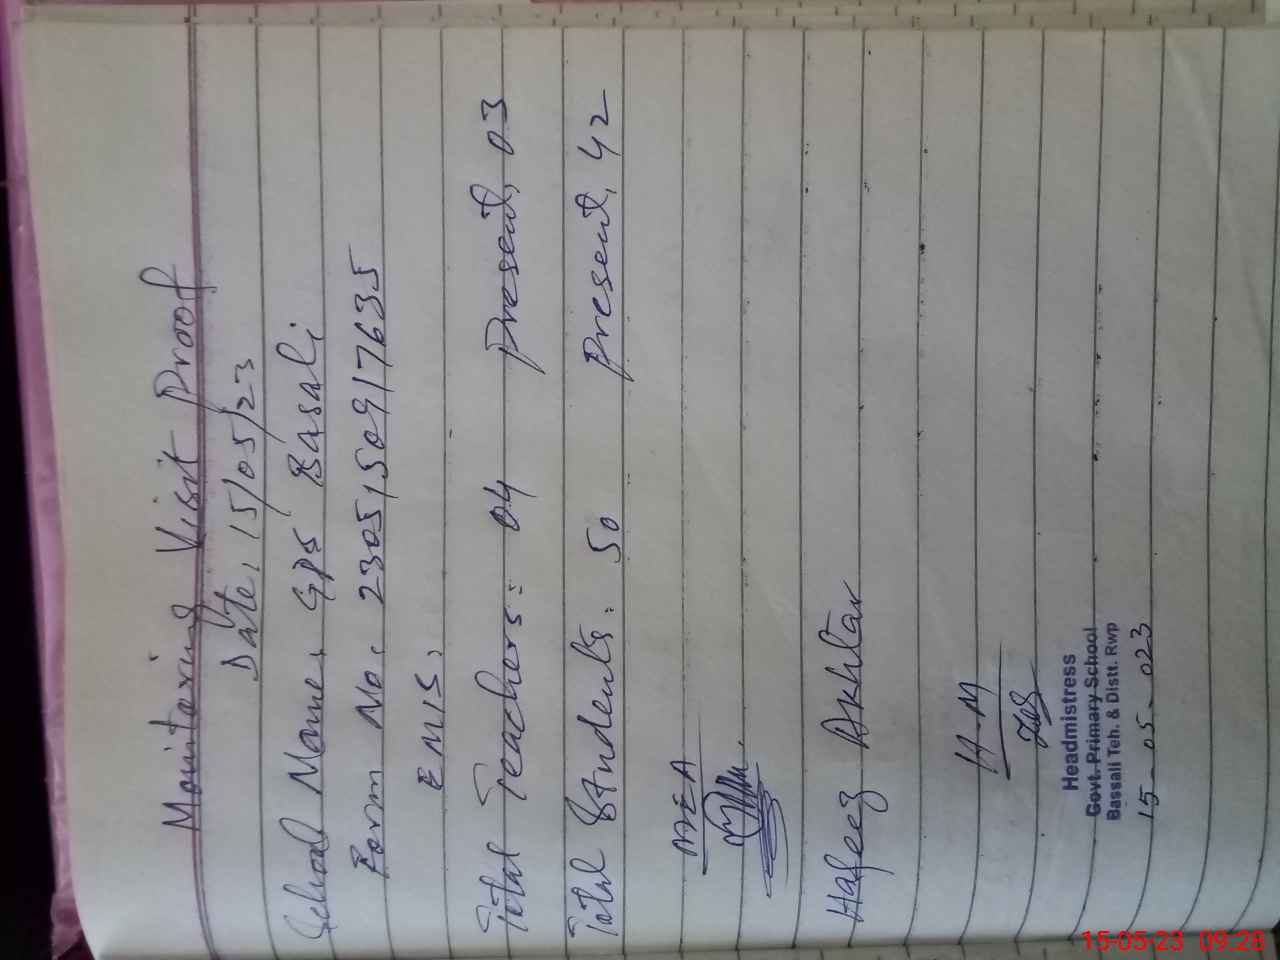 Monitoring Visit Proof
Date, 15/05/23
School Name, GPS Basali
Form No, 230515091 7635
EMIS,
Total Teachers = 04 Present, 03
Total Students = 50 Present, 42
MEA
Hafeez Akhtar
H-M
Headmistress
Govt. Primary School
Bassali Teh. & Distt. Rwp
15-05-023
15-05-23 09:28